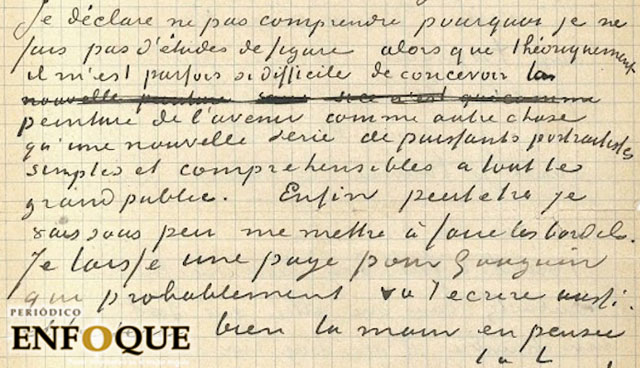 Je déclare ne pas comprendre pourquoi je ne
fais pas d'études de figure alors que théoriquement
il m'est parfois si difficile de concevoir la
nouvelle peinture si ce n'est comme
peinture de l'avenir comme autre chose
qu'une nouvelle serie de puissants portraitistes
simples et comprehensibles a tout le
grand public. Enfin peut etre je
vais sous peu me mettre à faire les bordels.
Je laisse une page pour Gauguin
qui probablement va t'ecrire aussi.
bien la main en pensée
PERIÓDICO
ENFOQUE